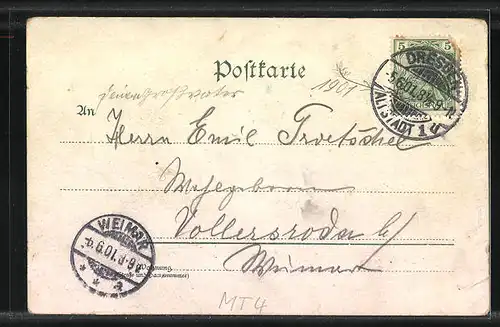 5 5
Postkarte
DRESDEN
5.6.01.8-9 N.
ALTSTADT 1
1901
An
Herrn Emil Troetschel
Vollersroda b/
Weimar
WEIMAR
6.6.01. 8-9
Wohnung
MT4